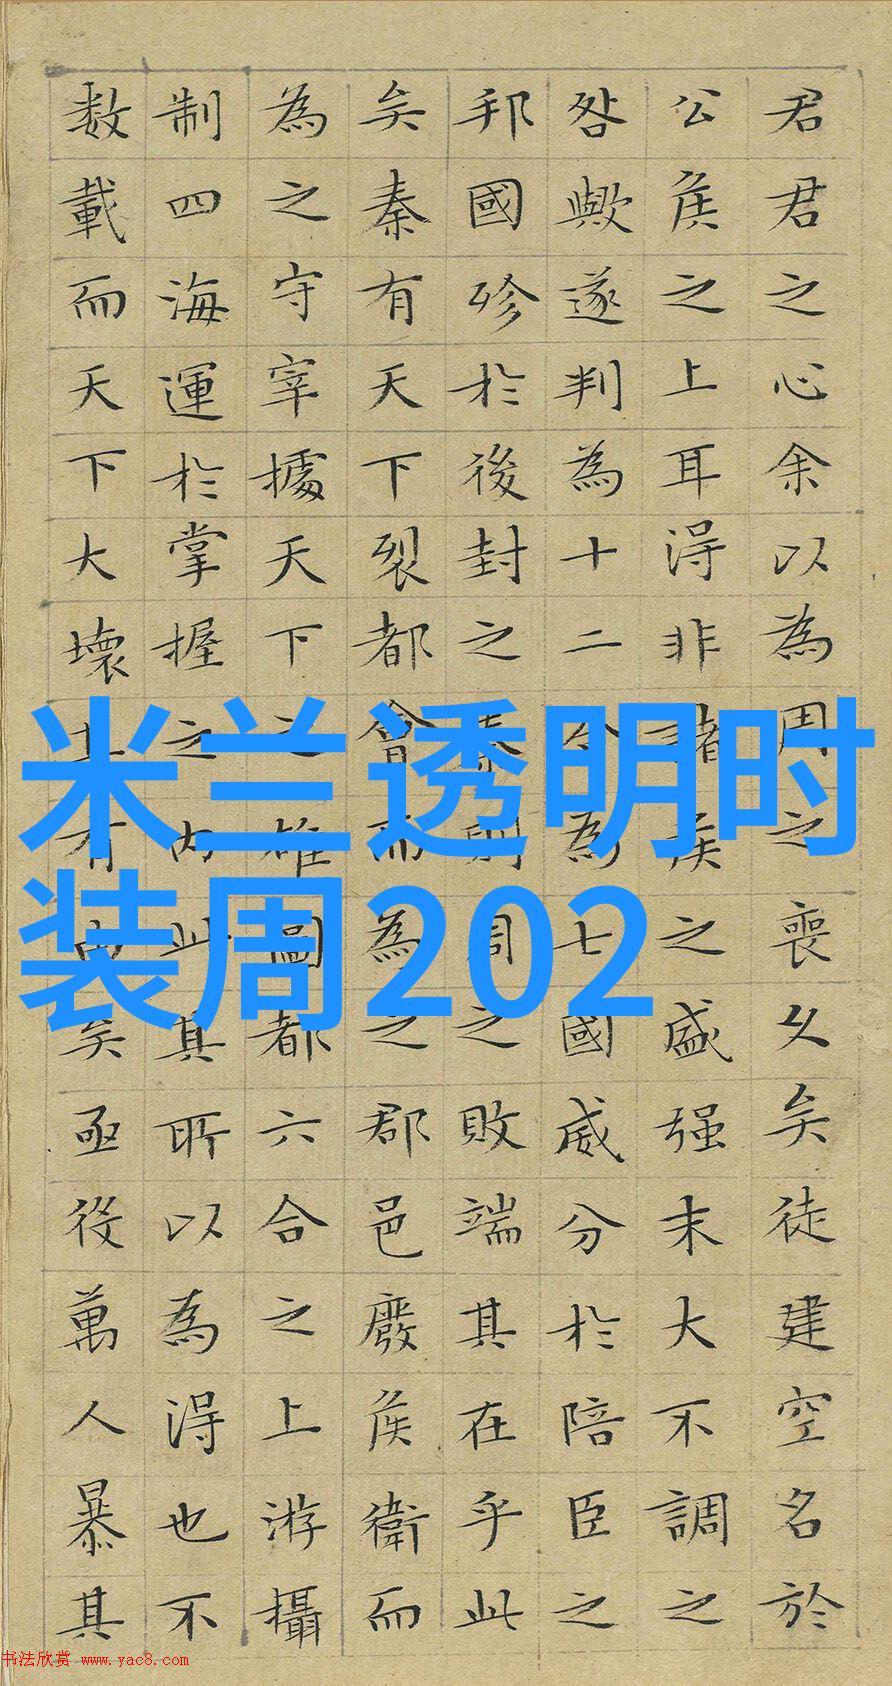 君君之心余以為周之喪久矣徒建空名於
公侯之上耳得非諸侯之盛强末大不調之
咎歟遂判為十二合為七國威分於陪臣之
邦國殄於後封之秦則周之敗端其在乎此
矣秦有天下裂都會而為之郡邑廢侯衛而
為之守宰據天下之雄圖都六合之上游攝
制四海運於掌握之内此其所以為得也不
数載而天下大壞其有由矣亟役萬人暴其
米兰透明时
装周202
书法欣赏 www.yac8.com